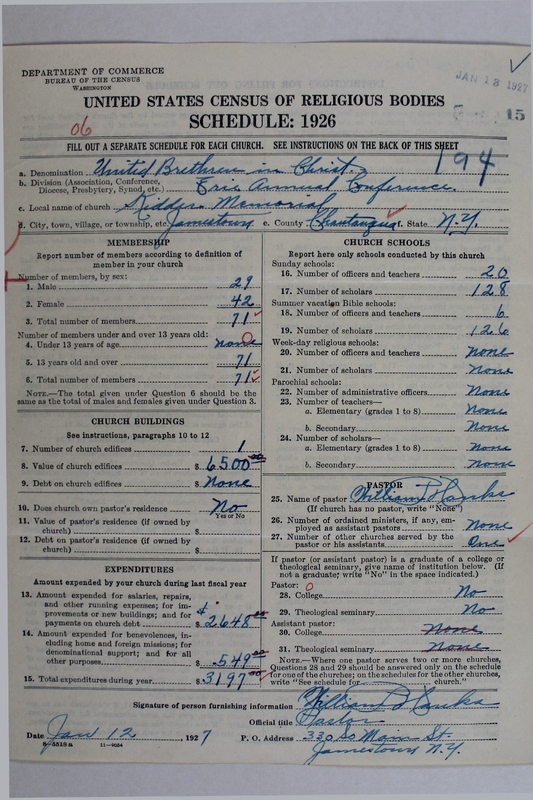 DEPARTMENT OF COMMERCE
BUREAU OF THE CENSUS
WASHINGTON
JAN 13 1927
15
UNITED STATES CENSUS OF RELIGIOUS BODIES
SCHEDULE: 1926
06
FILL OUT A SEPARATE SCHEDULE FOR EACH CHURCH. SEE INSTRUCTIONS ON THE BACK OF THIS SHEET
194
a. Denomination United Brethren in Christ
b. Division (Association, Conference, Diocese, Presbytery, Synod, etc.) Erie Annual Conference.
c. Local name of church Kidder Memorial
d. City, town, village, or township, etc. Jamestown e. County Chautauqua f. State N.Y.
MEMBERSHIP
Report number of members according to definition of member in your church
Number of members, by sex:
1. Male 29
2. Female 42
3. Total number of members 71
Number of members under and over 13 years old:
4. Under 13 years of age none 0
5. 13 years old and over 71
6. Total number of members 71
NOTE.—The total given under Question 6 should be the same as the total of males and females given under Question 3.
CHURCH BUILDINGS
See instructions, paragraphs 10 to 12
7. Number of church edifices 1
8. Value of church edifices $ 6500 00
9. Debt on church edifices $ None
10. Does church own pastor's residence No
Yes or No
11. Value of pastor's residence (if owned by church) $
12. Debt on pastor's residence (if owned by church) $
EXPENDITURES
Amount expended by your church during last fiscal year
13. Amount expended for salaries, repairs, and other running expenses; for improvements or new buildings; and for payments on church debt $ 2648 00
14. Amount expended for benevolences, including home and foreign missions; for denominational support; and for all other purposes $ 549 00
15. Total expenditures during year $ 3197 00
CHURCH SCHOOLS
Report here only schools conducted by this church
Sunday schools:
16. Number of officers and teachers 20
17. Number of scholars 128
Summer vacation Bible schools:
18. Number of officers and teachers 6
19. Number of scholars 126
Week-day religious schools:
20. Number of officers and teachers None
21. Number of scholars None
Parochial schools:
22. Number of administrative officers None
23. Number of teachers—
a. Elementary (grades 1 to 8) None
b. Secondary None
24. Number of scholars—
a. Elementary (grades 1 to 8) None
b. Secondary None
PASTOR
25. Name of pastor William
(If church has no pastor, write "None")
26. Number of ordained ministers, if any, employed as assistant pastors None
27. Number of other churches served by the pastor or his assistants One
If pastor (or assistant pastor) is a graduate of a college or theological seminary, give name of institution below. (If not a graduate; write "No" in the space indicated.)
Pastor: 0
28. College No
29. Theological seminary No
Assistant pastor:
30. College None
31. Theological seminary None
NOTE.—Where one pastor serves two or more churches, Questions 28 and 29 should be answered only on the schedule for one of the churches; on the schedules for the other churches, write "See schedule for church."
Signature of person furnishing information William
Official title Pastor
Date Jan 12, 1927 P. O. Address 330 So Main St.
8—5518a 11—9054 Jamestown N.Y.